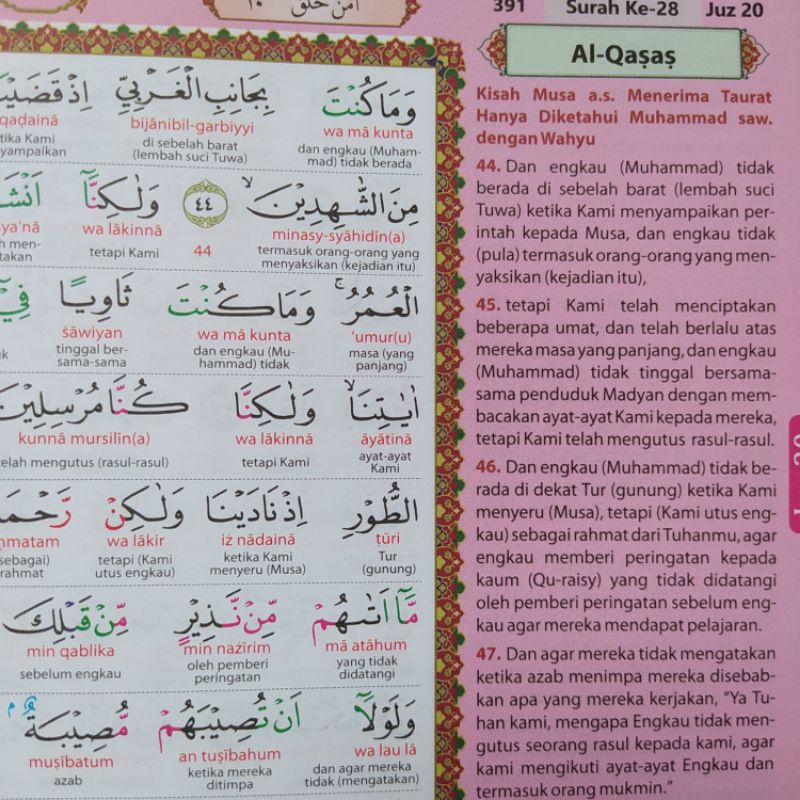 391 Surah Ke-28 Juz 20
امن خلق ١٠
Al-Qaṣaṣ
وَمَا كُنْتَ بِجَانِبِ الْغَرْبِيِّ
wa mā kunta bijānibil-garbiyyi qaḍainā
dan engkau (Muham-
mad) tidak berada
di sebelah barat
(lembah suci Tuwa)
مِنَ الشّٰهِدِيْنَۙ ٤٤ وَلٰكِنَّآ
minasy-syāhidīn(a) 44 wa lākinnā
termasuk orang-orang yang
menyaksikan (kejadian itu)
tetapi Kami
الْعُمُرُۚ وَمَا كُنْتَ ثَاوِيًا فِيْٓ
‘umur(u) wa mā kunta ṡāwiyan
masa (yang
panjang)
dan engkau (Mu-
hammad) tidak
tinggal ber-
sama-sama
اٰيٰتِنَاۙ وَلٰكِنَّا كُنَّا مُرْسِلِيْنَ
āyātinā wa lākinnā kunnā mursilīn(a)
ayat-ayat
Kami
tetapi Kami
telah mengutus (rasul-rasul)
الطُّوْرِ اِذْ نَادَيْنَا وَلٰكِنْ
ṭūri iż nādainā wa lākir
Tur
(gunung)
ketika Kami
menyeru (Musa)
tetapi (Kami
utus engkau)
sebagai)
rahmat
مَّآ اَتٰىهُمْ مِّنْ نَّذِيْرٍ مِّنْ قَبْلِكَ
mā atāhum min nażīrim min qablika
yang tidak
didatangi
oleh pemberi
peringatan
sebelum engkau
وَلَوْلَآ اَنْ تُصِيْبَهُمْ مُّصِيْبَةٌ ۢ
wa lau lā an tuṣībahum muṣībatum
dan agar mereka
tidak (mengatakan)
ketika mereka
ditimpa
azab
Kisah Musa a.s. Menerima Taurat
Hanya Diketahui Muhammad saw.
dengan Wahyu
44. Dan engkau (Muhammad) tidak
berada di sebelah barat (lembah suci
Tuwa) ketika Kami menyampaikan per-
intah kepada Musa, dan engkau tidak
(pula) termasuk orang-orang yang men-
yaksikan (kejadian itu),
45. tetapi Kami telah menciptakan
beberapa umat, dan telah berlalu atas
mereka masa yang panjang, dan engkau
(Muhammad) tidak tinggal bersama-
sama penduduk Madyan dengan mem-
bacakan ayat-ayat Kami kepada mereka,
tetapi Kami telah mengutus rasul-rasul.
46. Dan engkau (Muhammad) tidak be-
rada di dekat Tur (gunung) ketika Kami
menyeru (Musa), tetapi (Kami utus eng-
kau) sebagai rahmat dari Tuhanmu, agar
engkau memberi peringatan kepada
kaum (Qu-raisy) yang tidak didatangi
oleh pemberi peringatan sebelum eng-
kau agar mereka mendapat pelajaran.
47. Dan agar mereka tidak mengatakan
ketika azab menimpa mereka disebab-
kan apa yang mereka kerjakan, "Ya Tu-
han kami, mengapa Engkau tidak men-
gutus seorang rasul kepada kami, agar
kami mengikuti ayat-ayat Engkau dan
termasuk orang mukmin."